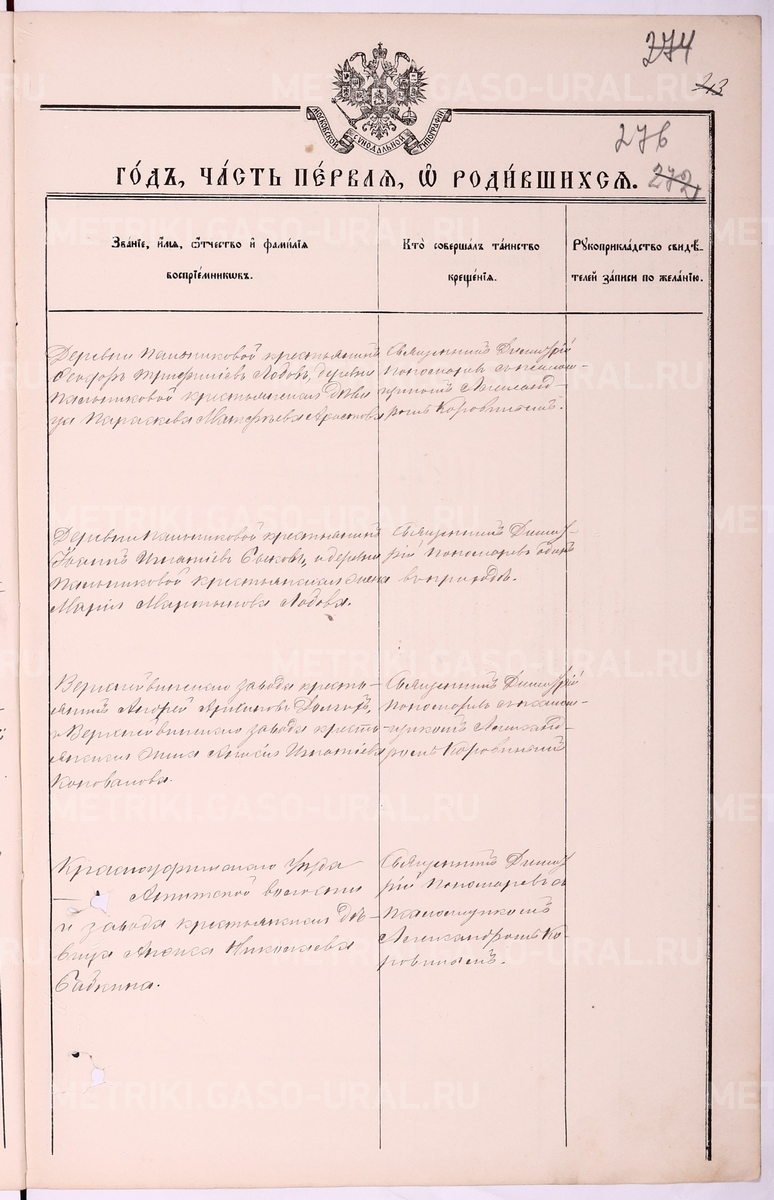 274
213
276
272
МОСКОВСКОЙ СѴНОДАЛЬНОЙ ТИПОГРАФІИ
ГО́ДЪ, ЧА́СТЬ ПЕ́РВАЯ, Ѡ҆ РОДИ́ВШИХСЯ.
Зва́нїе, и҆́мя, ѻ҆́тчество и҆ фами́лїя
воспрїе́мникѡвъ.
Кто̀ соверша́лъ та́инство
креще́нїя.
Рꙋкоприкла́дство свидѣ́-
телей за́писи по жела́нїю.
Деревни Пальниковой крестьянинъ
Ѳеодоръ Трифиліевъ Лодовъ, деревни
Пальниковой крестьянская дѣви
ца Параскева Матѳѣева
Священникъ Димитрій
Пономаревъ съ псалом-
щикомъ Александ-
ромъ Коровинымъ.
Деревни Пальниковой крестьянинъ
Іоаннъ Игнатіевъ Быковъ, и деревни
Пальниковой крестьянская жена
Марія Мартынова Лодова.
Священникъ Димит-
рій Пономаревъ одинъ
въ приходѣ.
завода кресть-
янинъ Андрей
и завода кресть
янская жена Анисія Игнатіева
Коновалова.
Священникъ Димитрій
Пономаревъ съ псалом-
щикомъ Александ-
ромъ Коровинымъ
Красноуфимскаго Уѣзда
Артинской волости
и завода крестьянская дѣ-
вица Анфиса Николаева
Бабкина.
Священникъ Димит
рій Пономаревъ съ
Псаломщикомъ
Александромъ Ко-
ровинымъ.
METRIKI.GASO-URAL.RU